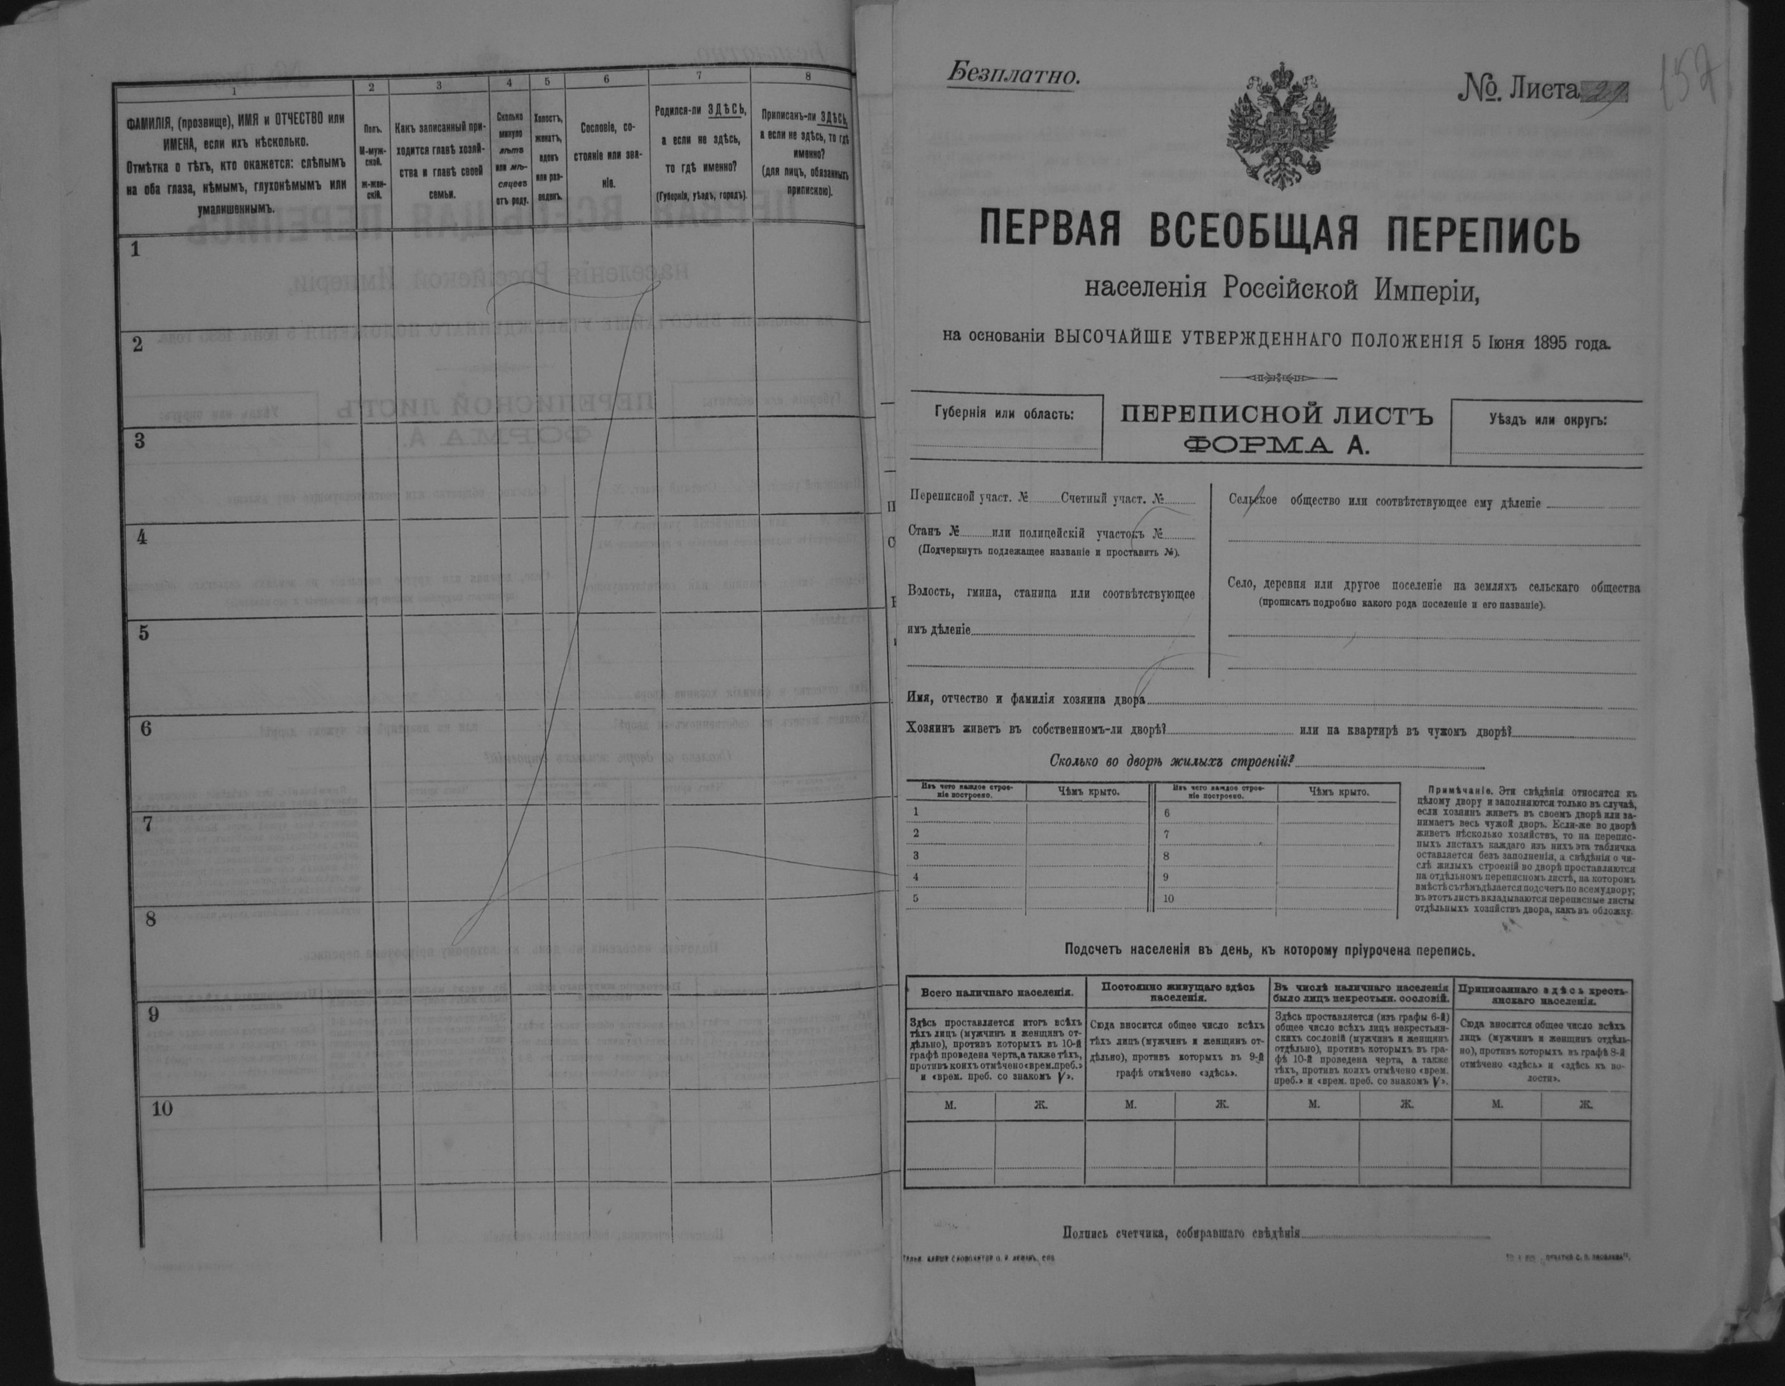 1 2 3 4 5 6 7 8
ФАМИЛІЯ, (прозвище), ИМЯ и ОТЧЕСТВО или
ИМЕНА, если ихъ нѣсколько.
Отмѣтка о тѣхъ, кто окажется: слѣпымъ
на оба глаза, нѣмымъ, глухонѣмымъ или
умалишеннымъ.
Полъ.
М-муж-
ской.
Ж-жен-
скій.
Какъ записанный при-
ходится главѣ хозяй-
ства и главѣ своей
семьи.
Сколько
минуло
лѣтъ
или мѣ-
сяцевъ
отъ роду.
Холостъ,
женатъ,
вдовъ
или раз-
веденъ.
Сословіе, со-
стояніе или зва-
ніе.
Родился-ли ЗДѢСЬ,
а если не здѣсь,
то гдѣ именно?
(Губернія, уѣздъ, городъ).
Приписанъ-ли ЗДѢСЬ,
а если не здѣсь, то гдѣ
именно?
(для лицъ, обязанныхъ
припискою).
1
2
3
4
5
6
7
8
9
10
Безплатно.
№. Листа 29
157
ПЕРВАЯ ВСЕОБЩАЯ ПЕРЕПИСЬ
населенія Россійской Имперіи,
на основаніи ВЫСОЧАЙШЕ УТВЕРЖДЕННАГО ПОЛОЖЕНІЯ 5 Іюня 1895 года.
Губернія или область:
ПЕРЕПИСНОЙ ЛИСТЪ
ФОРМА А.
Уѣздъ или округъ:
Переписной участ. № Счетный участ. №
Станъ № или полицейскій участокъ №
(Подчеркнуть подлежащее названіе и проставить №).
Волость, гмина, станица или соотвѣтствующее
имъ дѣленіе
Сельское общество или соотвѣтствующее ему дѣленіе
Село, деревня или другое поселеніе на земляхъ сельскаго общества
(прописать подробно какого рода поселеніе и его названіе).
Имя, отчество и фамилія хозяина двора
Хозяинъ живетъ въ собственномъ-ли дворѣ? или на квартирѣ въ чужомъ дворѣ?
Сколько во дворѣ жилыхъ строеній?
Изъ чего каждое строе-
ніе построено.
Чѣмъ крыто.
Изъ чего каждое строе-
ніе построено.
Чѣмъ крыто.
1 6
2 7
3 8
4 9
5 10
Примѣчаніе. Эти свѣдѣнія относятся къ
цѣлому двору и заполняются только въ случаѣ,
если хозяинъ живетъ въ своемъ дворѣ или за-
нимаетъ весь чужой дворъ. Если-же во дворѣ
живетъ нѣсколько хозяйствъ, то на перепис-
ныхъ листахъ каждаго изъ нихъ эта табличка
оставляется безъ заполненія, а свѣдѣнія о чи-
слѣ жилыхъ строеній во дворѣ проставляются
на отдѣльномъ переписномъ листѣ, на которомъ
вмѣстѣ съ тѣмъ дѣлается подсчетъ по всему двору;
въ этотъ листъ вкладываются переписные листы
отдѣльныхъ хозяйствъ двора, какъ въ обложку.
Подсчетъ населенія въ день, къ которому пріурочена перепись.
Всего наличнаго населенія.
Постоянно живущаго здѣсь
населенія.
Въ числѣ наличнаго населенія
было лицъ некрестьян. сословій.
Приписаннаго здѣсь кресть-
янскаго населенія.
Здѣсь проставляется итогъ всѣхъ
тѣхъ лицъ (мужчинъ и женщинъ от-
дѣльно), противъ которыхъ въ 10-й
графѣ проведена черта, а также тѣхъ,
противъ коихъ отмѣчено «врем. преб.»
и «врем. преб. со знакомъ V».
Сюда вносится общее число всѣхъ
тѣхъ лицъ (мужчинъ и женщинъ от-
дѣльно), противъ которыхъ въ 9-й
графѣ отмѣчено «здѣсь».
Здѣсь проставляется (изъ графы 6-й)
общее число всѣхъ лицъ некрестьян-
скихъ сословій (мужчинъ и женщинъ
отдѣльно), противъ которыхъ въ гра-
фѣ 10-й проведена черта, а также
тѣхъ, противъ коихъ отмѣчено «врем.
преб.» и «врем. преб. со знакомъ V».
Сюда вносится общее число всѣхъ
лицъ (мужчинъ и женщинъ отдѣль-
но), противъ которыхъ въ графѣ 8-й
отмѣчено «здѣсь» и «здѣсь къ во-
лости».
М. Ж. М. Ж. М. Ж. М. Ж.
Подпись счетчика, собиравшаго свѣдѣнія